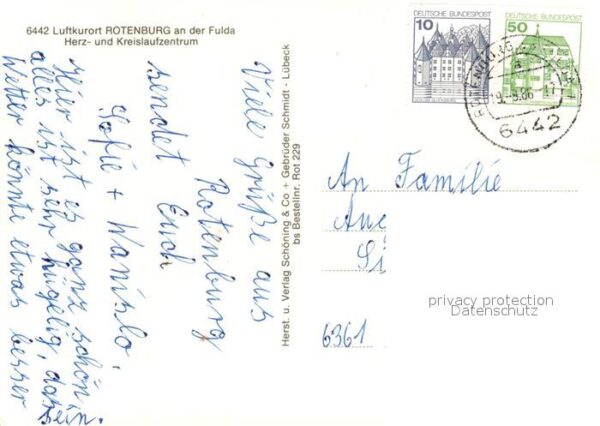 6442 Luftkurort ROTENBURG an der Fulda
Herz- und Kreislaufzentrum
Viele Grüße aus
Rotenburg
sendet Euch
Sofie + Wanislo,
Hier ist es ganz schön
alles ist sehr hügelig, das
Wetter könnte etwas besser
sein.
Herst. u. Verlag Schöning & Co + Gebrüder Schmidt - Lübeck
bs Bestellnr. Rot 229
10
DEUTSCHE BUNDESPOST
50
DEUTSCHE BUNDESPOST
6442
An Familie
6361
privacy protection
Datenschutz